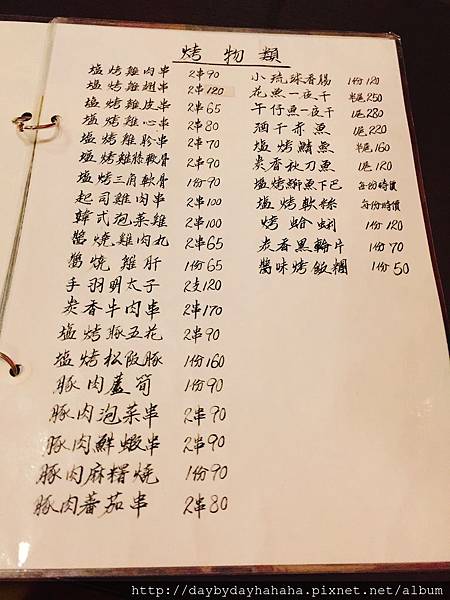 烤物類
塩烤雞肉串 2串90
塩烤雞翅串 2串120
塩烤雞皮串 2串65
塩烤雞心串 2串80
塩烤雞胗串 2串70
塩烤雞膝軟骨 2串90
塩烤三角軟骨 1份90
起司雞肉串 2串100
韓式泡菜雞 2串100
醬燒雞肉丸 2串65
醬燒雞肝 1份65
手羽明太子 2支120
炭香牛肉串 2串170
塩烤豚五花 2串90
塩烤松阪豚 1份160
豚肉蘆筍 1份90
豚肉泡菜串 2串90
豚肉鮮蝦串 2串90
豚肉麻糬燒 1份90
豚肉蕃茄串 2串80
小琉球香腸 1份120
花魚一夜干 半尾250
午仔魚一夜干 1尾280
酒干赤魚 1尾220
塩烤鯖魚 半尾160
炭香秋刀魚 1尾120
塩烤鰤魚下巴 每份時價
塩烤軟絲 每份時價
烤蛤蜊 1份120
炭香黑輪片 1份70
醬味烤飯糰 1份50
http://daybydayhahaha.pixnet.net/album